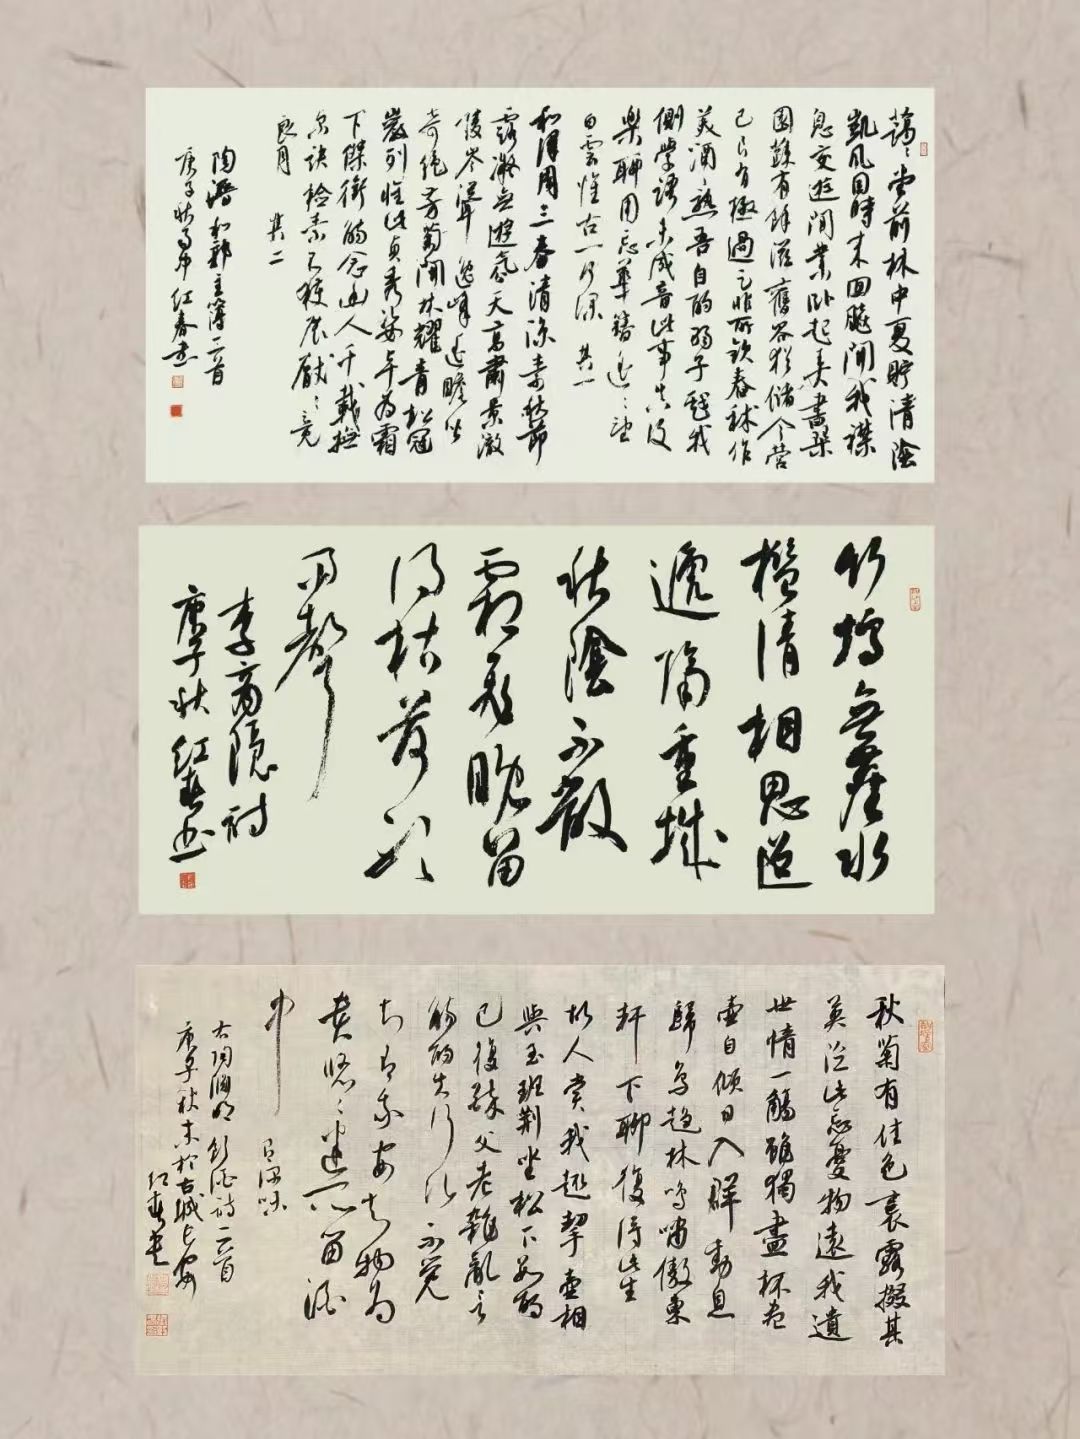 藹〻堂前林中夏貯清陰
凱風因時来回飈開我襟
息交遊閒業卧起弄書琴
園蔬有餘滋舊穀猶儲今營
己良有極過足非所欽舂秫作
美酒〻熟吾自酌弱子戲我
側學語未成音此事真復
樂聊用忘華簪遥〻望
白雲懷古一何深 其一
和澤周三春清涼素秋節
露凝無遊氛天高肅景澈
陵岑聳逸峰遥瞻皆
奇絶芳菊開林耀青松冠
巖列懷此貞秀姿卓為霜
下傑銜觴念幽人千載撫
尔訣檢素不獲展厭〻竟
良月 其二
陶潛和郭主簿二首
庚子秋 红春书
竹塢無塵水
檻清相思迢
遞隔重城
秋陰不散
霜飛晚留
得枯荷聽
雨聲
李商隐詩
庚子秋 红春书
秋菊有佳色裛露掇其
英泛此忘憂物遠我遺
世情一觴雖獨盡杯盡
壺自傾日入群動息
歸鳥趨林鳴嘯傲東
軒下聊復得此生
故人賞我趣挈壺相
與至班荊坐松下數酌
已復醉父老雜亂言
觴酌失行次不覺
知有我安知物為
貴悠〻迷所留酒
中
有深味
右陶渊明飲酒詩二首
庚子秋末於古城长安
红春书